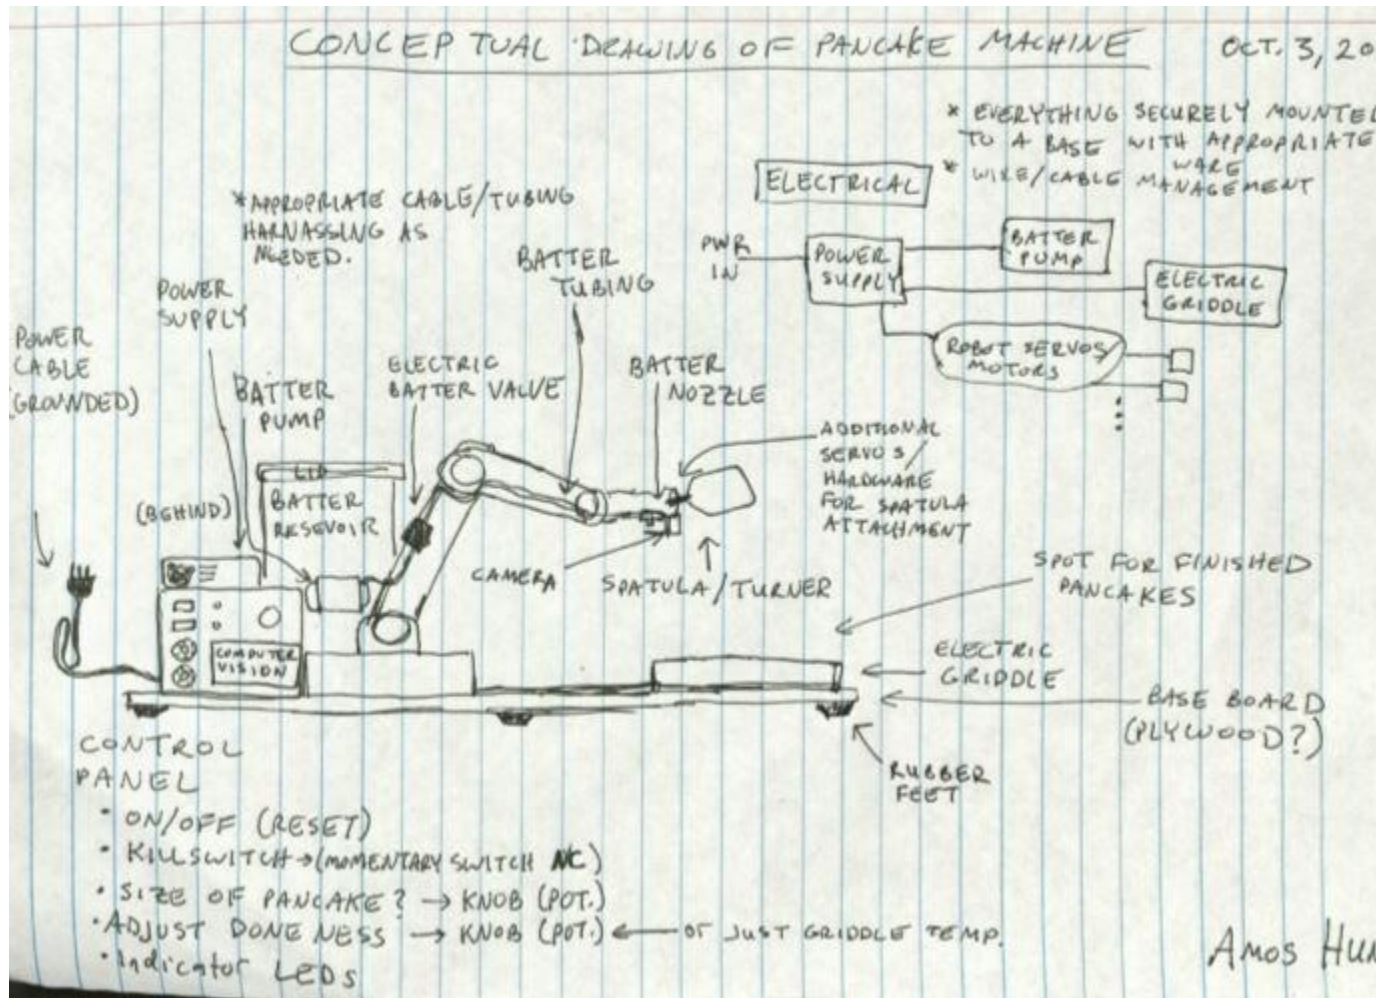 CONCEPTUAL DRAWING OF PANCAKE MACHINE
OCT. 3, 20
* EVERYTHING SECURELY MOUNTED
TO A BASE WITH APPROPRIATE
WARE
* WIRE/CABLE MANAGEMENT
ELECTRICAL
PWR
IN
POWER
SUPPLY
BATTER
PUMP
ELECTRIC
GRIDDLE
ROBOT SERVOS/
MOTORS
*APPROPRIATE CABLE/TUBING
HARNASSING AS
NEEDED.
BATTER
TUBING
POWER
SUPPLY
POWER
CABLE
(GROUNDED)
BATTER
PUMP
ELECTRIC
BATTER VALVE
BATTER
NOZZLE
ADDITIONAL
SERVOS/
HARDWARE
FOR SPATULA
ATTACHMENT
(BEHIND)
LID
BATTER
RESEVOIR
CAMERA
SPATULA/TURNER
SPOT FOR FINISHED
PANCAKES
COMPUTER
VISION
ELECTRIC
GRIDDLE
BASE BOARD
(PLYWOOD?)
RUBBER
FEET
CONTROL
PANEL
• ON/OFF (RESET)
• KILLSWITCH → (MOMENTARY SWITCH NC)
• SIZE OF PANCAKE? → KNOB (POT.)
• ADJUST DONENESS → KNOB (POT.) ← or JUST GRIDDLE TEMP.
• Indicator LEDs
AMOS HUN